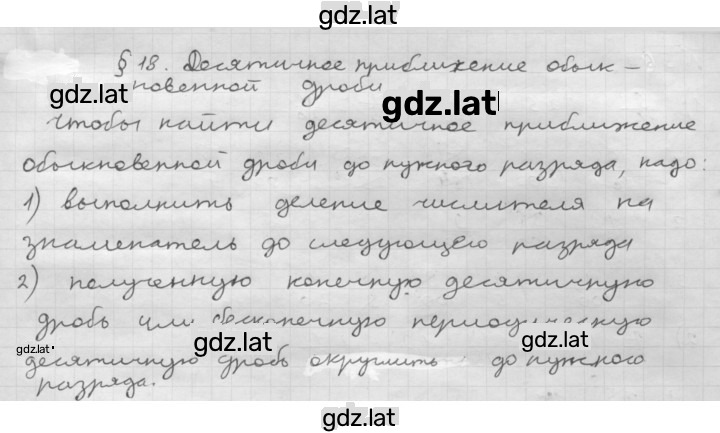 gdz.lat
§ 18. Десятичное приближение обык-
gdz.lat новенной дроби gdz.lat
Чтобы найти десятичное приближение
обыкновенной дроби до нужного разряда, надо:
1) выполнить деление числителя на
знаменатель до следующего разряда
2) полученную конечную десятичную
дробь или бесконечную периодическую
gdz.lat gdz.lat gdz.lat
десятичную дробь округлить до нужного
разряда.
gdz.lat